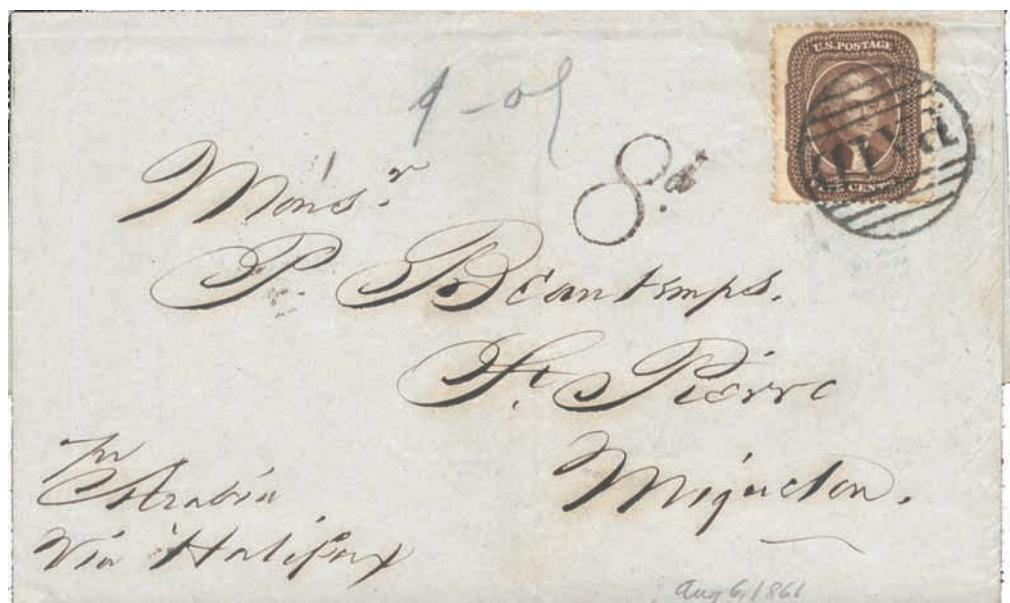 U.S. POSTAGE
CENTS
8d
Monsr
P. Beautemps.
St. Pierre
Miquelon.
Pr
Arabia
Via Halifax
Aug 6, 1861